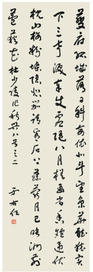 夔府孤城落日斜每依北斗望京華聽猿實
下三聲淚奉使虛隨八月槎畫省香爐違伏
枕山樓粉堞隱悲笳請看石上藤蘿月已映洲前
蘆荻花 杜少陵秋興八首之二
于右任